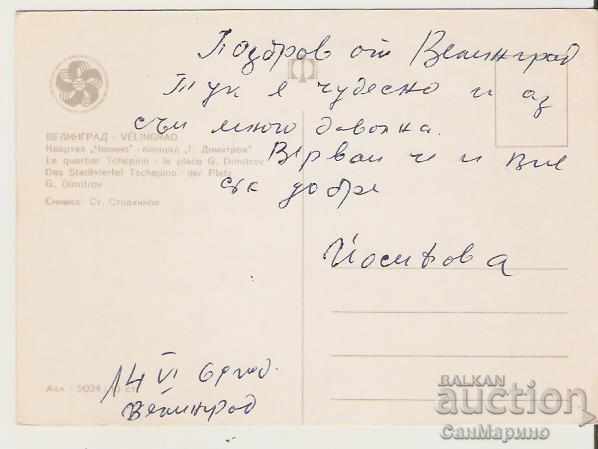 Поздров от Велинград
Тук я чудесно и аз
съм много доволна.
Вервам че и вие
сте добре
Йосифова
ВЕЛИНГРАД - VELINGRAD
Квартал „Чепино" - площад „Г. Димитров"
Le quartier Tchepino - la place G. Dimitrov
Das Stadtviertel Tschepino - der Platz
G. Dimitrov
Снимка: Ст.
14 VI 69 год.
Велинград
BALKAN
auction
СанМарино